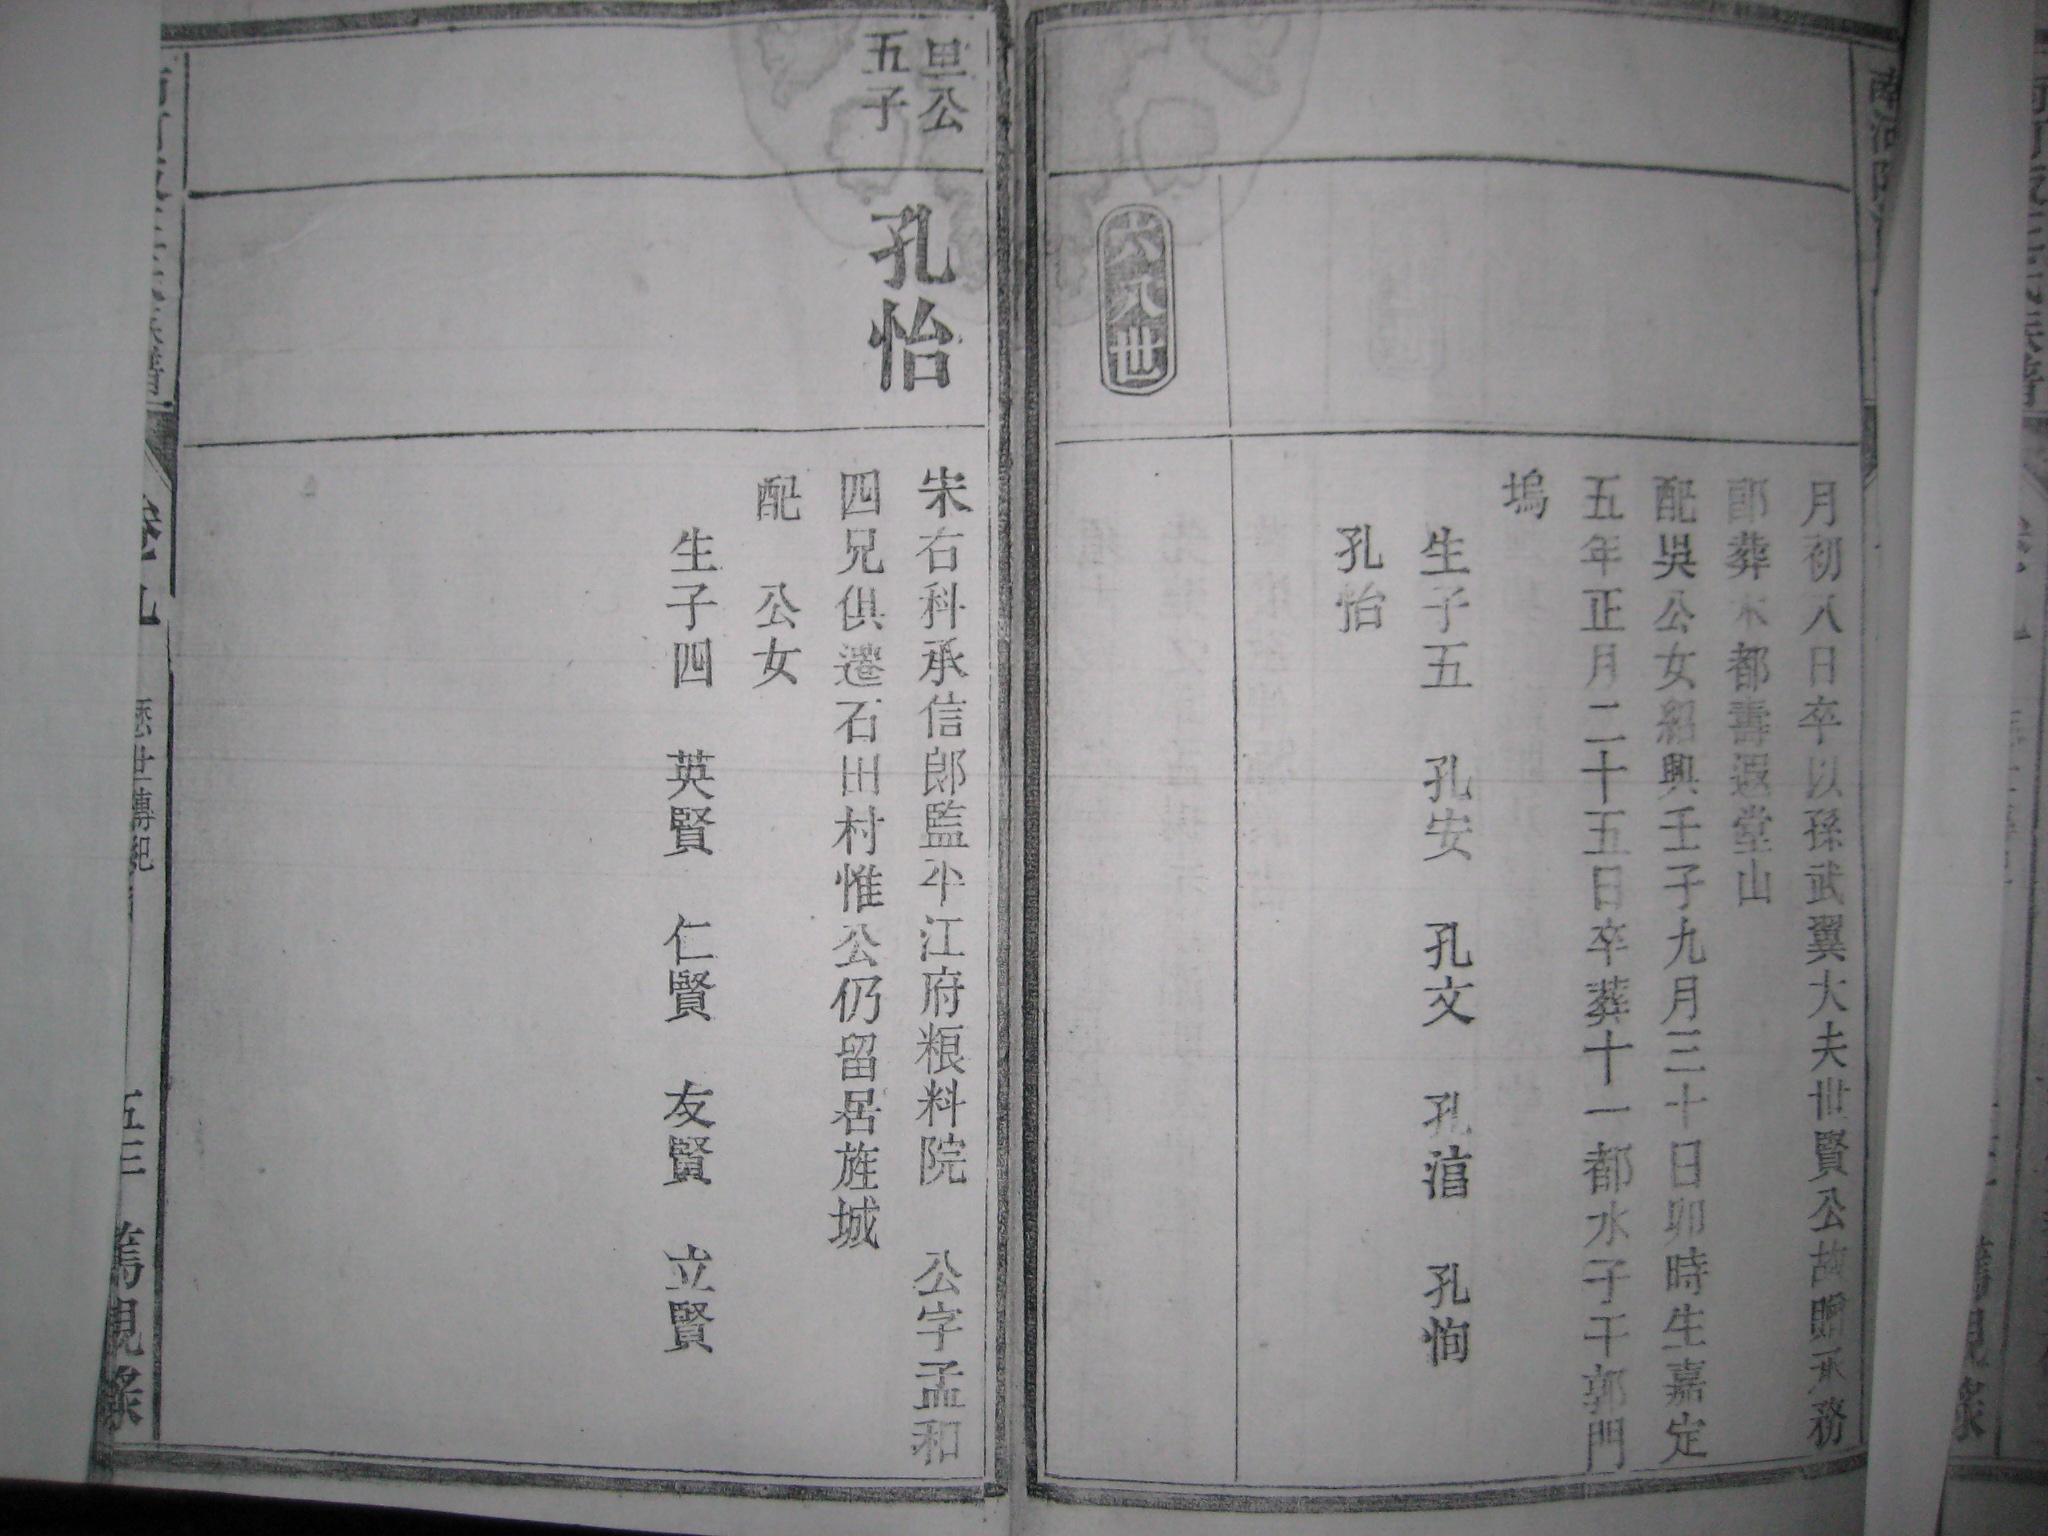 月初八日卒以孫武翼大夫世賢公故贈承務
郎葬木都壽遐堂山
配吳公女紹興壬子九月三十日卯時生嘉定
五年正月二十五日卒葬十一都水子干郭門
塢
生子五 孔安 孔文 孔湻 孔恂
孔怡
六八世
里公
五子
孔怡
宋右科承信郎監平江府粮料院 公字孟和
四兄俱遷石田村惟公仍留居旌城
配 公女
生子四 英賢 仁賢 友賢 立賢
卷九
歷世傳紀
五三
篤親錄